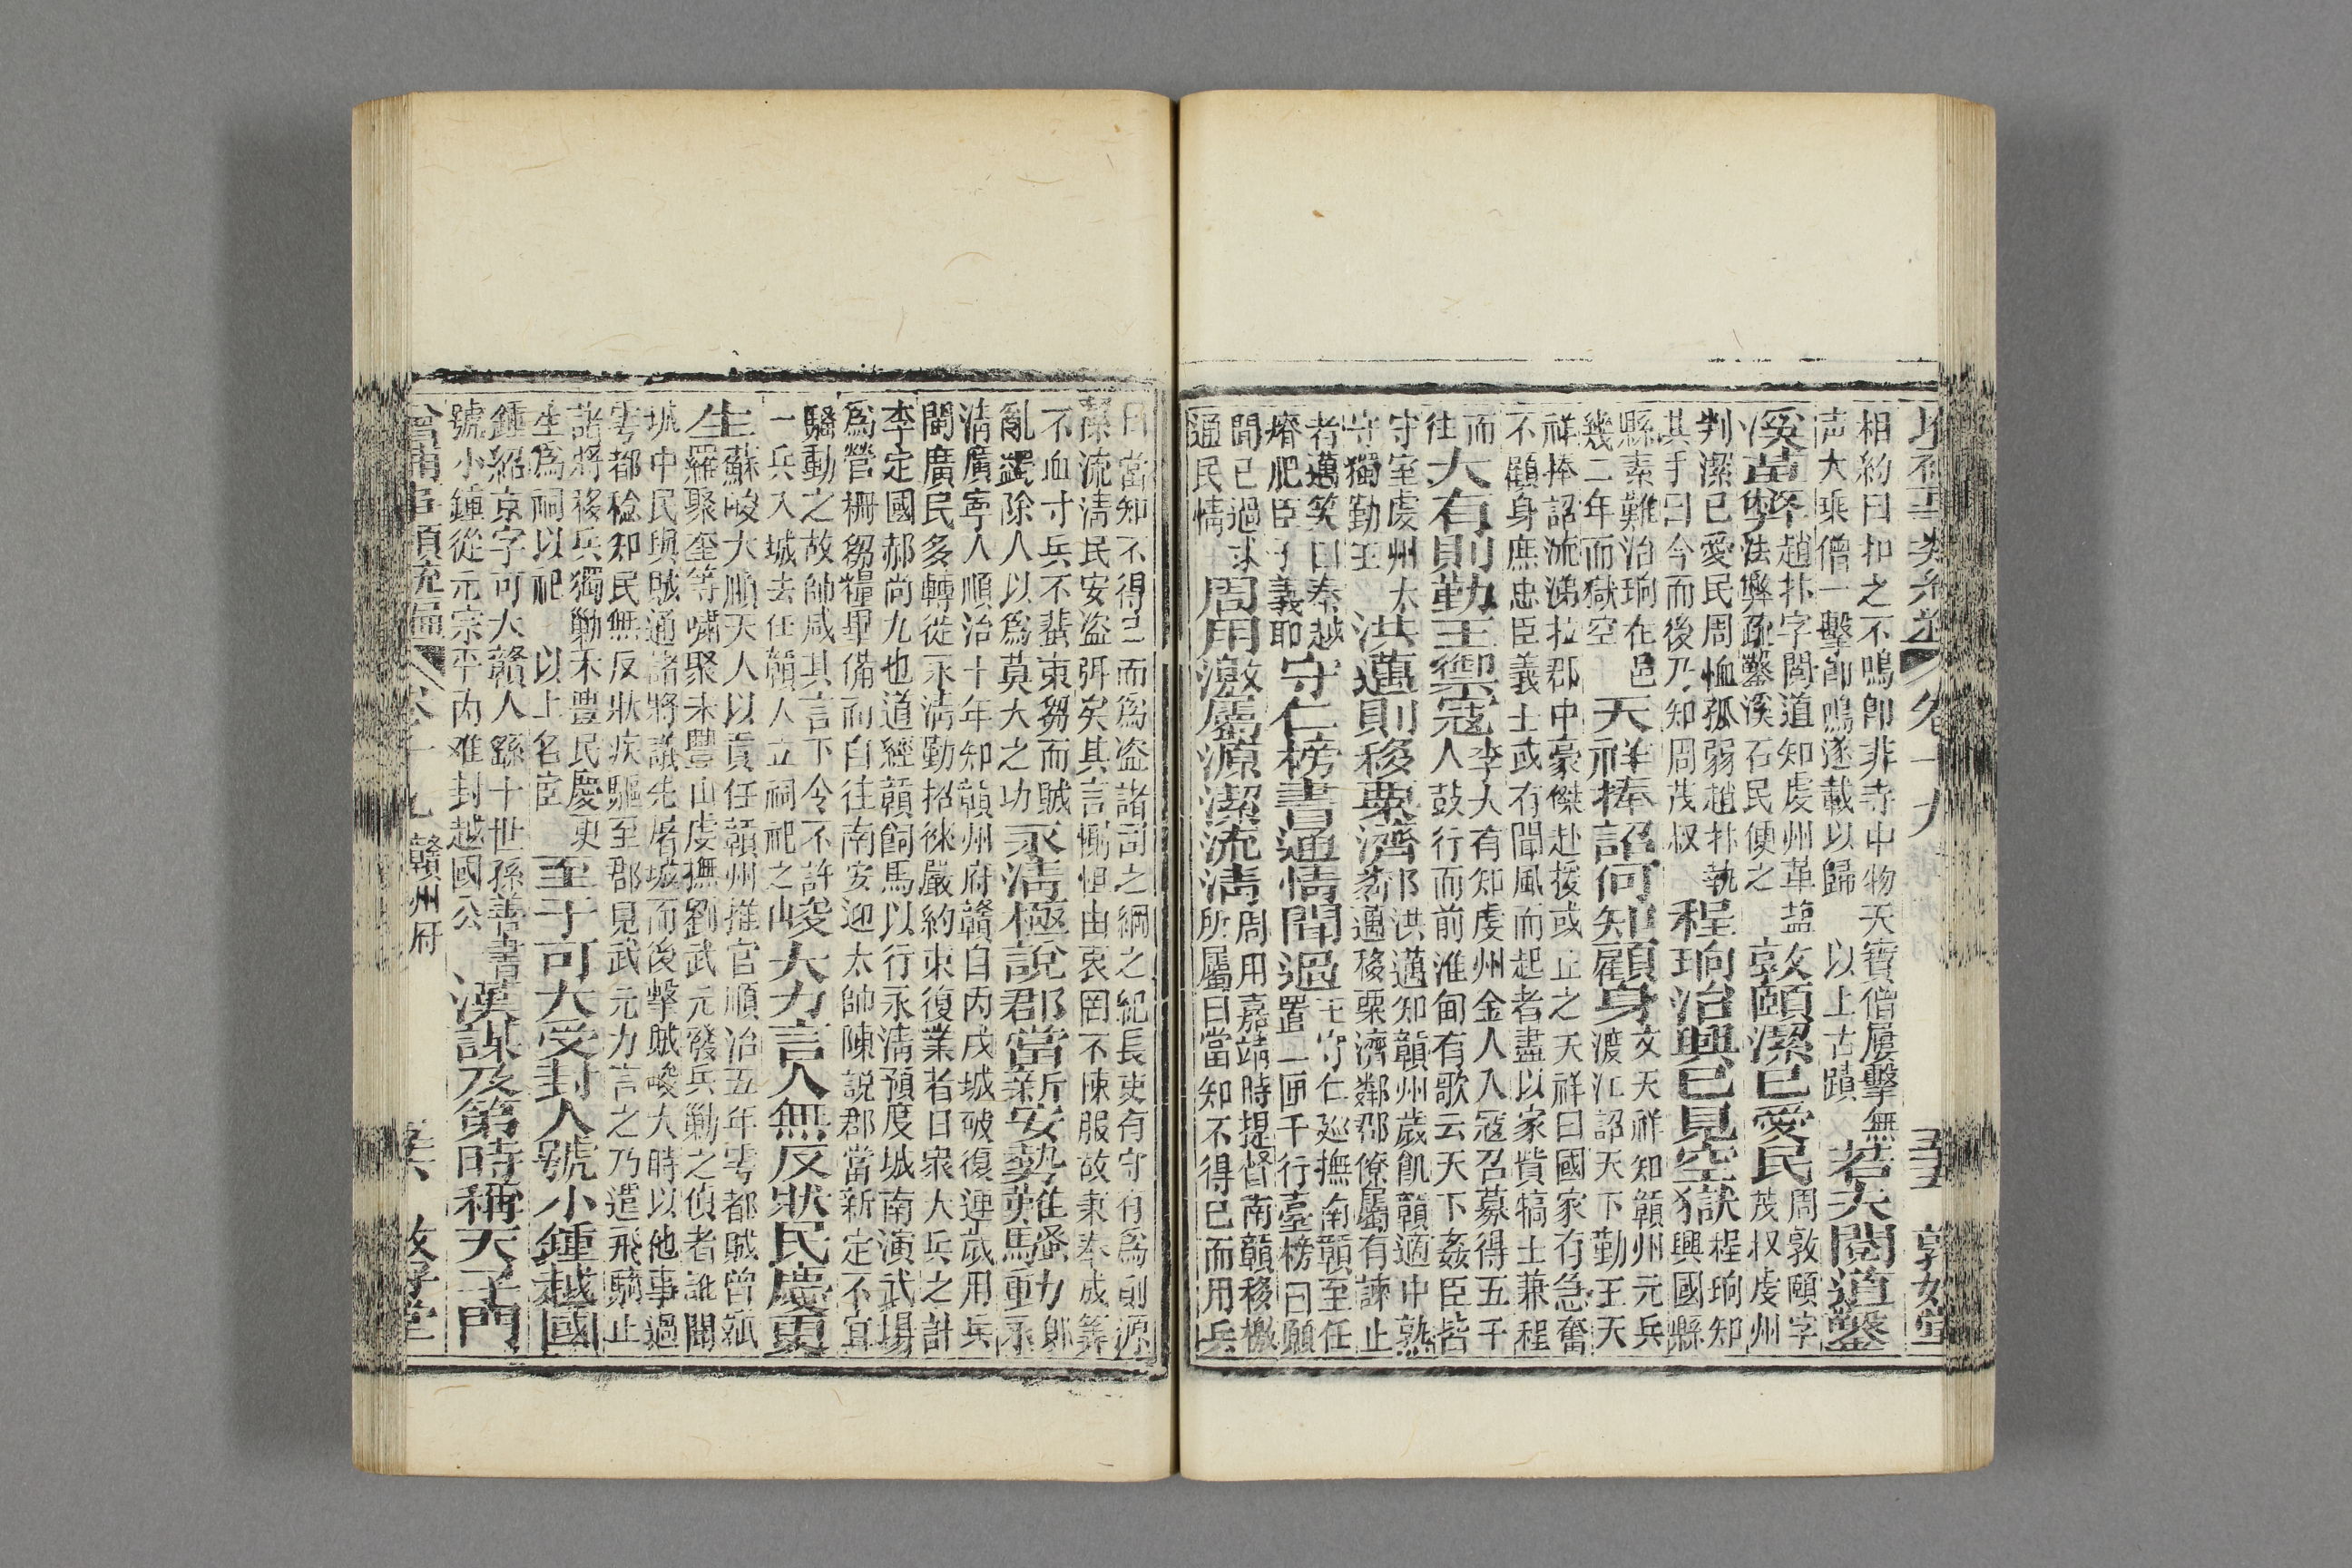 相約曰扣之不鳴卽非寺中物天寶僧屢擊無
声大乘僧一擊卽鳴遂載以歸 以上古蹟
若夫閱道鑿
溪苗弊
趙抃字閱道知虔州革鹽
法弊疏鑿溪石民便之
敦頤潔已愛民
周敦頤字
茂叔虔州
判潔已愛民周恤孤弱趙抃執
其手曰今而後乃知周茂叔
程珦治興已見空獄
程珦知
興國縣
縣素難治珦在邑
幾二年而獄空
天祥捧詔何知顧身
文天祥知贛州元兵
渡江詔天下勤王天
祥捧詔流涕拉郡中豪傑赴援或止之天祥曰國家有急奮
不顧身庶忠臣義士或有聞風而起者盡以家貲犒士兼程
而
往
大有則勤王禦寇
李大有知虔州金人入寇召募得五千
人鼓行而前淮甸有歌云天下姦臣皆
守室虔州太
守獨勤王
洪邁則移粟濟鄰
洪邁知贛州歲飢贛適中熟
邁移粟濟鄰郡僚屬有諫止
者邁笑曰秦越
瘠肥臣子義耶
守仁榜書通情聞過
王守仁巡撫南贛至任
置一匣千行臺榜曰願
聞已過求
通民情
周用激屬源潔流淸
周用嘉靖時提督南贛移檄
所屬曰當知不得已而用兵
曰當知不得已而爲盗諸司之綱之紀長吏有守有爲則源
潔流淸民安盗弭矣其言惻怛由衷罔不悚服故兼奉成筭
不血寸兵不蜚束芻而賊
亂蠲除人以爲莫大之功
永淸極說郡當新安勢難騷動
郞
永
淸廣寧人順治十年知贛州府贛自丙戌城破復連歲用兵
閩廣民多轉徙永淸勤招徠嚴約束復業者日衆大兵之計
李定國郝尚九也道經贛飼馬以行永淸預度城南演武場
爲營柵芻糧畢備而自往南安迎太帥陳說郡當新定不宜
騷動之故帥咸其言下令不許
一兵入城去任贛人立祠祀之
峻大力言人無反狀民慶更
生
蘇峻大順天人以貢任贛州推官順治五年雩都賊曾
羅聚奎等嘯聚未豐山虔撫劉武元發兵勦之偵者訛聞
城中民與賊通諸將議先屠城而後擊賊峻大時以他事過
雩都稔知民無反狀疾驅至郡見武元力言之乃遣飛騎止
諸將移兵獨勦禾豐民慶更
生爲祠以祀 以上名宦
至于可大受封人號小鍾越國
鍾紹京字可大贛人繇十世孫善書
號小鍾從元宗平內难封越國公
漢謀及第時稱天子門
卷十九 贛州府